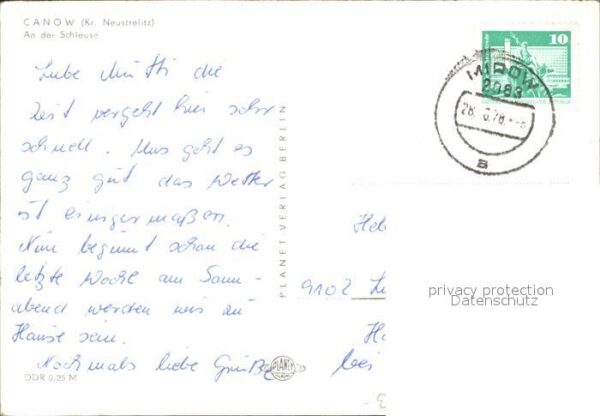 CANOW (Kr. Neustrelitz)
An der Schleuse
Liebe Mutti die
Zeit vergeht hier sehr
schnell. Uns geht es
ganz gut das Wetter
ist einigermaßen.
Nun beginnt schon die
letzte Woche am Sonn-
abend werden wir zu
Hause sein.
Nochmals liebe Grüße
DDR 0,25 M
PLANET VERLAG BERLIN
PLANET
10
MIROW
2083
a
Hel
9102
Ha
bei
privacy protection
Datenschutz